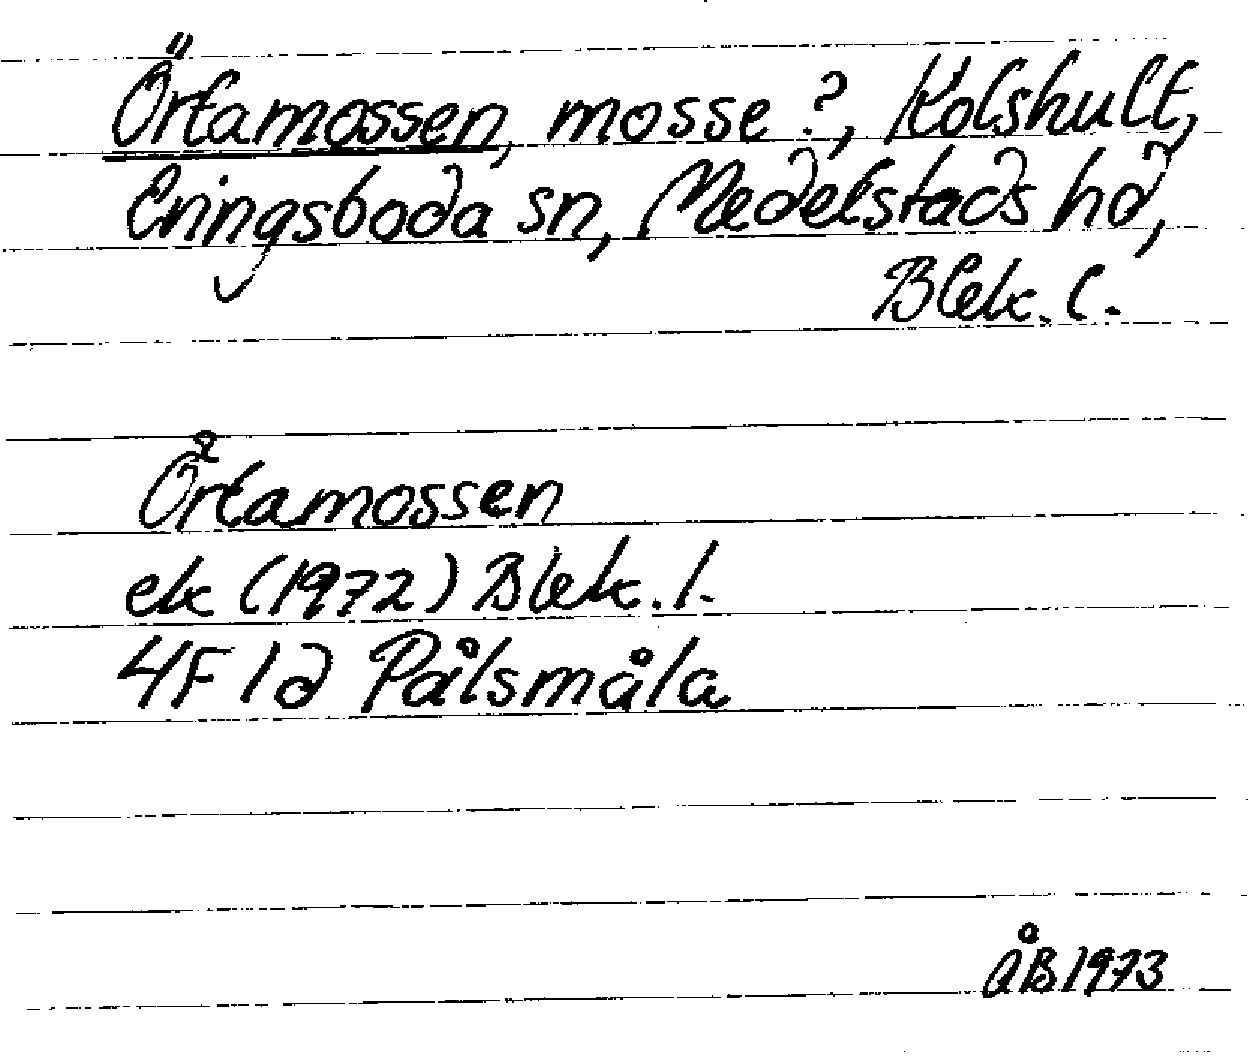 Örtamossen, mosse?, Kolshult,
Eringsboda sn, Medelstads hd,
Blek. l.
Örtamossen
ek (1972) Blek. l.
4F 1d Pålsmåla
ÅB 1973